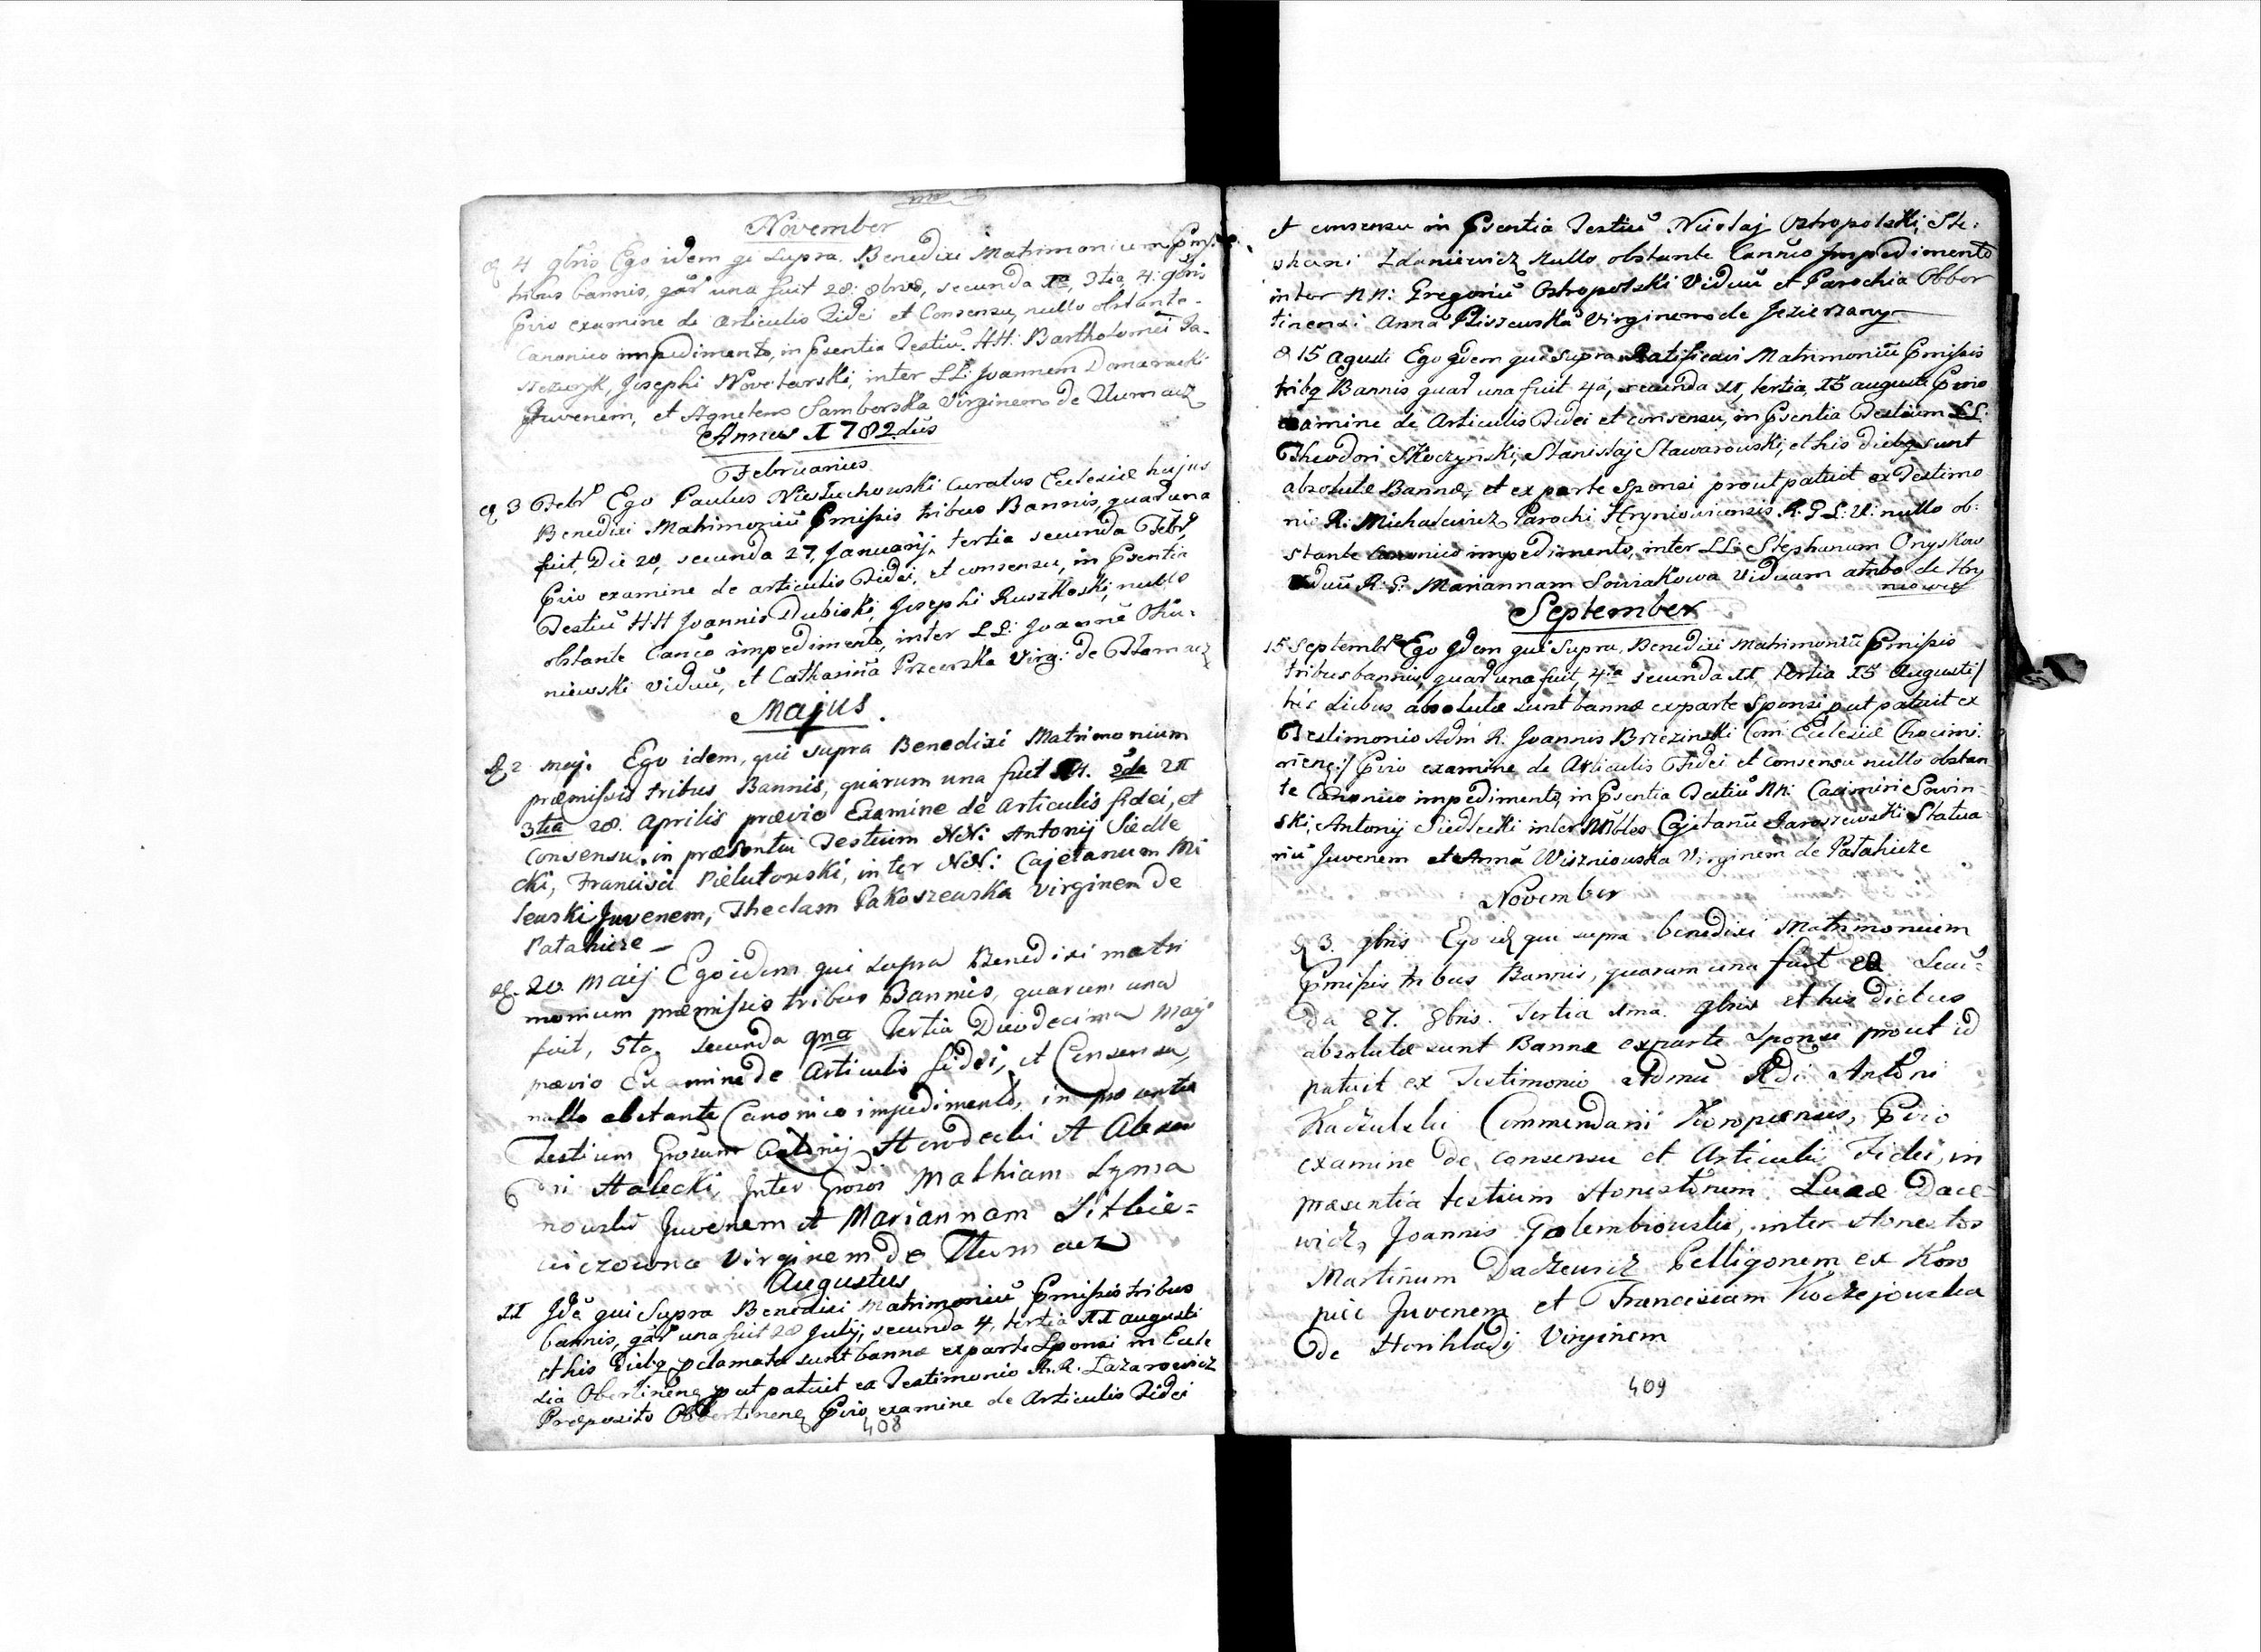 November
4 9bris Ego idem qi Supra Benedixi Matrimonium
tribus bannis, quar una fuit 28: 8bris, secunda 1a, 3tia, 4: 9bris
examine de Articulis Fidei et Consensu, nullo obstante
Canonico impedimento, in Psentia Testiu HH: Bartholomei Ja-
Josephi Nove tarski, inter LL: Joannem Domaracki
Juvenem, et Agnetem Samborska Virginem de Tlumacz
Annus 1782dus
Februarius
3 Febr Ego Paulus Niestuchowski Curatus Eclesiæ hujus
Benedixi Matrimoniu Pmissis tribus Bannis, quar una
fuit, Die 20, secunda 27, Januarij, tertia secunda Febr,
Pvio examine de articulis Fidei, et consensu, in Psentia
Testiu HH Joannis Dubiski, Josephi Ruszkoski, nullo
obstante Canco impedimento, inter LL: Joanne Oku-
niewski viduu, et Catharina Przeorska Virg: de Tlomacz
Majus.
2 Maij. Ego idem, qui supra Benedixi Matrimonium
præmissis tribus Bannis, quarum una fuit 14. 2da 21
3tia 28. Aprilis prævio Examine de Articulis fidei, et
Consensu, in præsentia Testium NN: Antonij Siedle
cki, Francisci Pielutowski, inter NN: Cajetanum Mi
lewski Juvenem, Theclam Pakoszewska Virginem de
Patahicze
20 Maij Ego idem qui supra Benedixi matri
monium præmissis tribus Bannis, quarum una
fuit, 5ta secunda 9na Tertia Duodecima Maji
prævio Examine de Articulis fidei, et Consensu,
nullo obstante Canonico impedimento, in
Testium Grosum Antonij et Alexan
dri Stalecki, Inter Grosos Mathiam Syma
nowski Juvenem et Mariannam Sitkie=
wiczowna Virginem de Tlumacz
Augustus
11 Ide qui Supra Benedixi Matrimoniu Pmissis tribus
bannis, quar una fuit 28 Julij, secunda 4, tertia 11 augusti
et his diebq pclamatæ sunt bannæ ex parte Sponsi in Ecle
sia Obertinenq put patuit ex Testimonio A.R. Lazarowicz
Præposito Obbertinenq Pvio examine de Articulis Fidei
408
et consensu in Psentia Testiu Nicolaj Ostropolski, Ste-
phani Zdaniewicz Nullo obstante Cannco Impedimento
inter NN: Gregoriu Ostropolski Viduu et Parochia Obber
tinensi Anna Piszewska Virginem de Jezierzany
15 Agusti Ego Idem qui supra Ratificavi Matrimoniu Pmissis
tribq Bannis quar una fuit 4a, secunda 11, tertia 15 augusti Pvio
examine de Articulis Fidei et consensu, in Psentia Testium LL:
Theodori Skoczynski, Stanislaj Stawarowski, et his diebq sunt
absolutæ Bannæ, et ex parte Sponsi prout patuit ex Testimo
nio R: Michalewicz Parochi Hryniowicensis R: G L: U: nullo ob-
stante Canonico impedimento, inter LL: Stephanum Onyskow
viduu R: G: Mariannam Souiakowa Viduam ambo de Hry
niowcy
September
15 Septembr Ego Idem qui Supra, Benedixi Matrimoniu Pmissis
tribus bannis, quar una fuit, 4ta secunda 11, tertia 15 Augusti/
his diebus absolutæ sunt bannæ ex parte Sponsi put patuit ex
Testimonio Adm R. Joannis Brzezinski Com: Eclesiæ Chocimi-
rienq:/ Pvio examine de Articulis Fidei et Consensu nullo obstan
te Canonico impedimento, in Psentia Testiu NN: Casimiri Sowin-
ski, Antonij Siedlecki inter Cajetanu Jaroszewski Statua
riu Juvenem et Anna Wiszniowska Virginem de Patahicze
November
3. 9bris Ego id qui supra benedixi Matrimonium
Pmissis tribus Bannis, quarum una fuit 20 Secu=
da 27. 8bris. Tertia 3tia 9bris et his diebus
absolutæ sunt Bannæ ex parte Sponsi prout id
patuit ex Testimonio Admu Rdi Antoni
Commendarii Koropiensis, Pvio
examine de consensu et Articulis Fidei, in
præsentia testium Honestorum Lucæ Dace=
wicz, Joannis Golembiowski, inter Honestos
Martinum Daczewicz Pelligonem ex Koro
piec Juvenem et Franciscam
de Honihlady Virginem
409